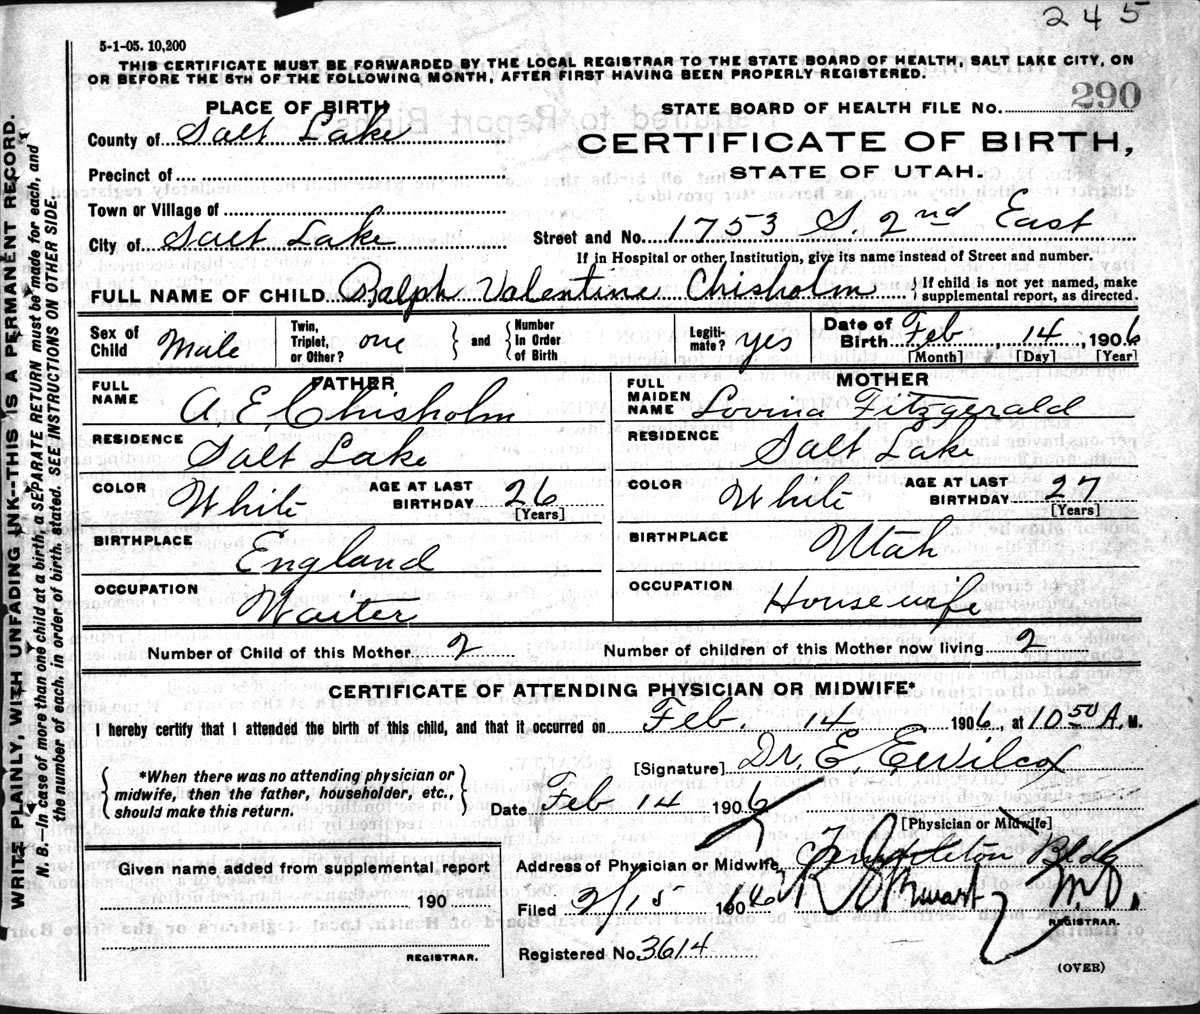 245
5-1-05. 10,200
THIS CERTIFICATE MUST BE FORWARDED BY THE LOCAL REGISTRAR TO THE STATE BOARD OF HEALTH, SALT LAKE CITY, ON
OR BEFORE THE 5TH OF THE FOLLOWING MONTH, AFTER FIRST HAVING BEEN PROPERLY REGISTERED.
PLACE OF BIRTH
STATE BOARD OF HEALTH FILE NO. 290
County of Salt Lake
CERTIFICATE OF BIRTH,
Precinct of
STATE OF UTAH.
Town or Village of
City of Salt Lake
Street and No. 1753 S. 2nd East
If in Hospital or other Institution, give its name instead of Street and number.
FULL NAME OF CHILD Ralph Valentine Chisholm
If child is not yet named, make
supplemental report, as directed.
Sex of
Child Male
Twin,
Triplet,
or Other? one
and
Number
in Order
of Birth
Legiti-
mate? yes
Date of
Birth Feb 14, 1906
[Month] [Day] [Year]
FATHER
FULL
NAME A. E. Chisholm
RESIDENCE Salt Lake
COLOR White
AGE AT LAST
BIRTHDAY 26
[Years]
BIRTHPLACE England
OCCUPATION Waiter
MOTHER
FULL
MAIDEN
NAME Lovina Fitzgerald
RESIDENCE Salt Lake
COLOR White
AGE AT LAST
BIRTHDAY 27
[Years]
BIRTHPLACE Utah
OCCUPATION Housewife
Number of Child of this Mother 2
Number of children of this Mother now living 2
CERTIFICATE OF ATTENDING PHYSICIAN OR MIDWIFE*
I hereby certify that I attended the birth of this child, and that it occurred on Feb. 14 1906, at 10 50 A. M.
[Signature] Dr. E. E. Wilcox
*When there was no attending physician or
midwife, then the father, householder, etc.,
should make this return.
Date Feb 14 1906
[Physician or Midwife]
Address of Physician or Midwife Templeton Bldg
Given name added from supplemental report
190
REGISTRAR.
Filed 2/15 1906
M.D.
REGISTRAR.
Registered No. 3614
(OVER)
WRITE PLAINLY, WITH UNFADING INK--THIS IS A PERMANENT RECORD.
N. B.—In case of more than one child at a birth, a SEPARATE RETURN must be made for each, and
the number of each, in order of birth, stated. SEE INSTRUCTIONS ON OTHER SIDE.